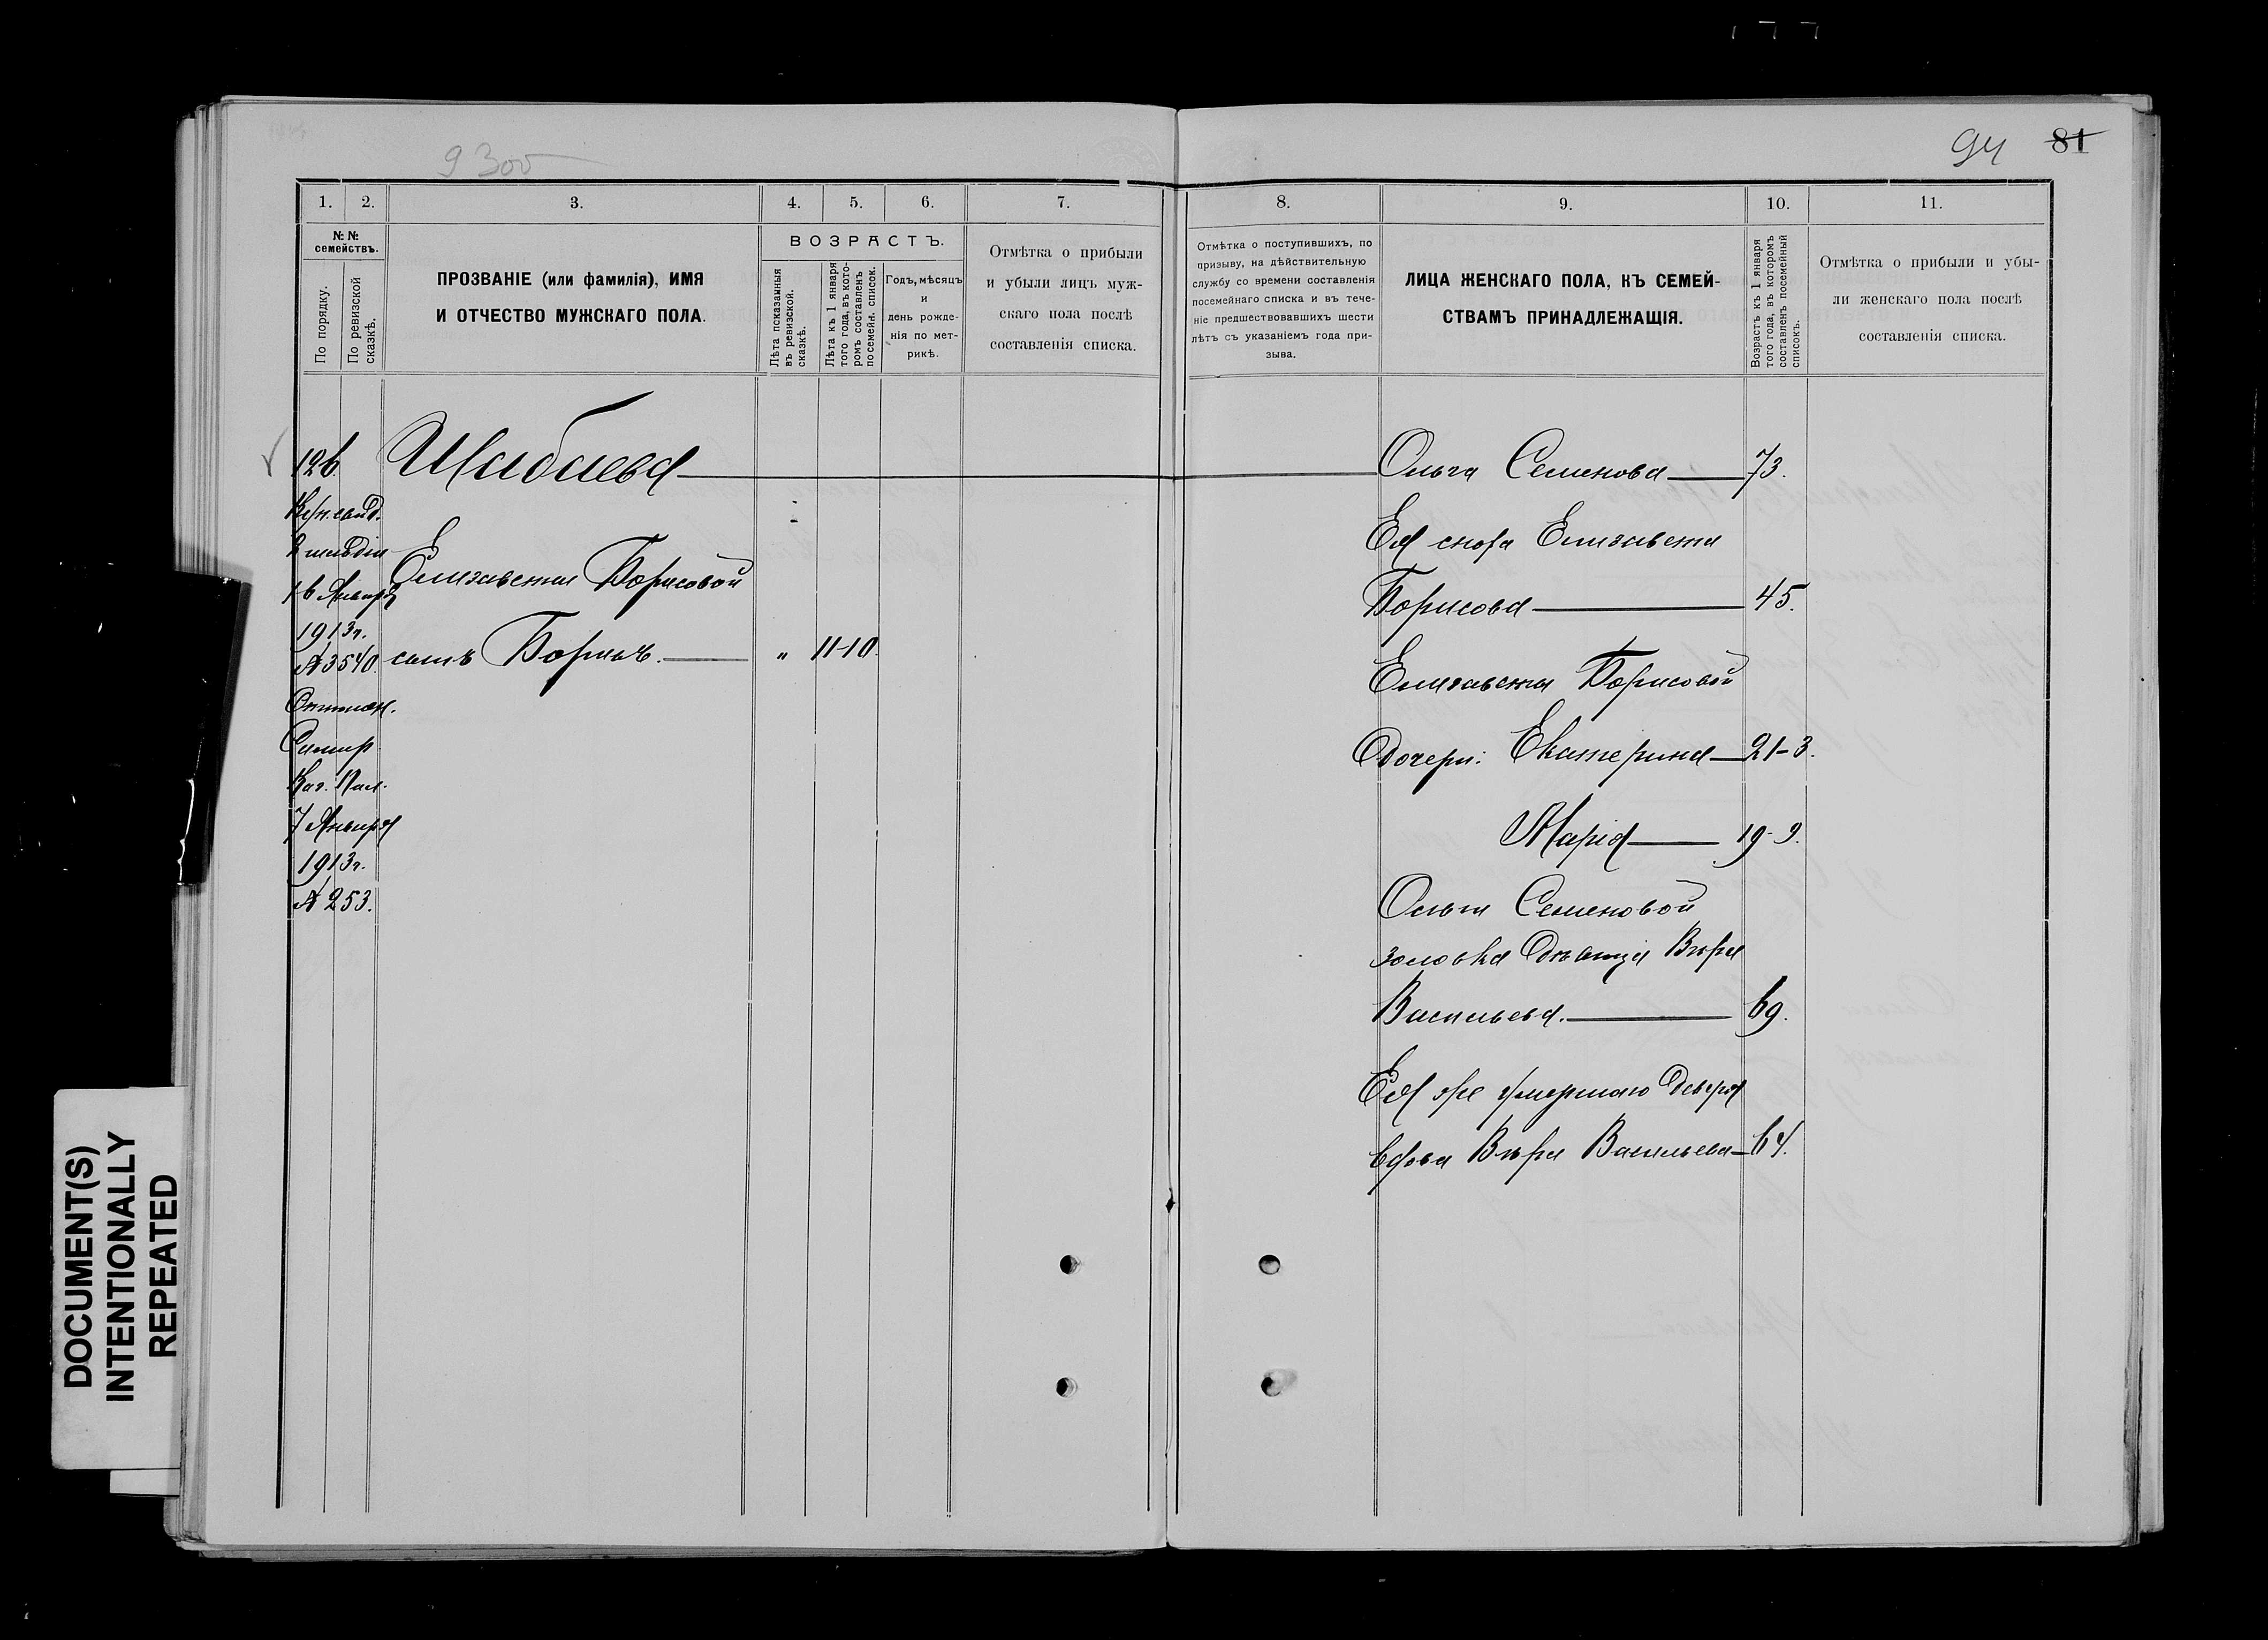 94 81
9300
1. 2. 3. 4. 5. 6. 7.
№ №
семействъ.
По порядку.
По ревизской
сказкѣ.
ПРОЗВАНІЕ (или фамилія), ИМЯ
И ОТЧЕСТВО МУЖСКАГО ПОЛА.
ВОЗРАСТЪ.
Лѣта показанныя
въ ревизской.
сказкѣ.
Лѣта къ 1 января
того года, въ кото-
ромъ составленъ
посемейн. список.
Годъ, мѣсяцъ
и
день рожде-
нія по мет-
рикѣ.
Отмѣтка о прибыли
и убыли лицъ муж-
скаго пола послѣ
составленія списка.
126 Шабаева
Елизаветы Борисовой
сынъ Борисъ. „ 11-10.
16 Января
1913г.
№ 3540.
7 Января
1913г.
№ 253.
8. 9. 10. 11.
Отмѣтка о поступившихъ, по
призыву, на дѣйствительную
службу со времени составленія
посемейнаго списка и въ тече-
ніе предшествовавшихъ шести
лѣтъ съ указаніемъ года при-
зыва.
ЛИЦА ЖЕНСКАГО ПОЛА, КЪ СЕМЕЙ-
СТВАМЪ ПРИНАДЛЕЖАЩІЯ.
Возрастъ къ 1 января
того года, въ которомъ
составленъ посемейный
списокъ.
Отмѣтка о прибыли и убы-
ли женскаго пола послѣ
составленія списка.
Ольга Семенова 73.
Ея сноха Елизавета
Борисова 45.
Елизаветы Борисовой
Дочери: Екатерина 21-3.
Марія 19-9.
Ольги Семеновой
золовка Дѣвица Вѣра
Васильева. 69.
Ея же умершаго Деверя
вдова Вѣра Васильева 64.
DOCUMENT(S)
INTENTIONALLY
REPEATED